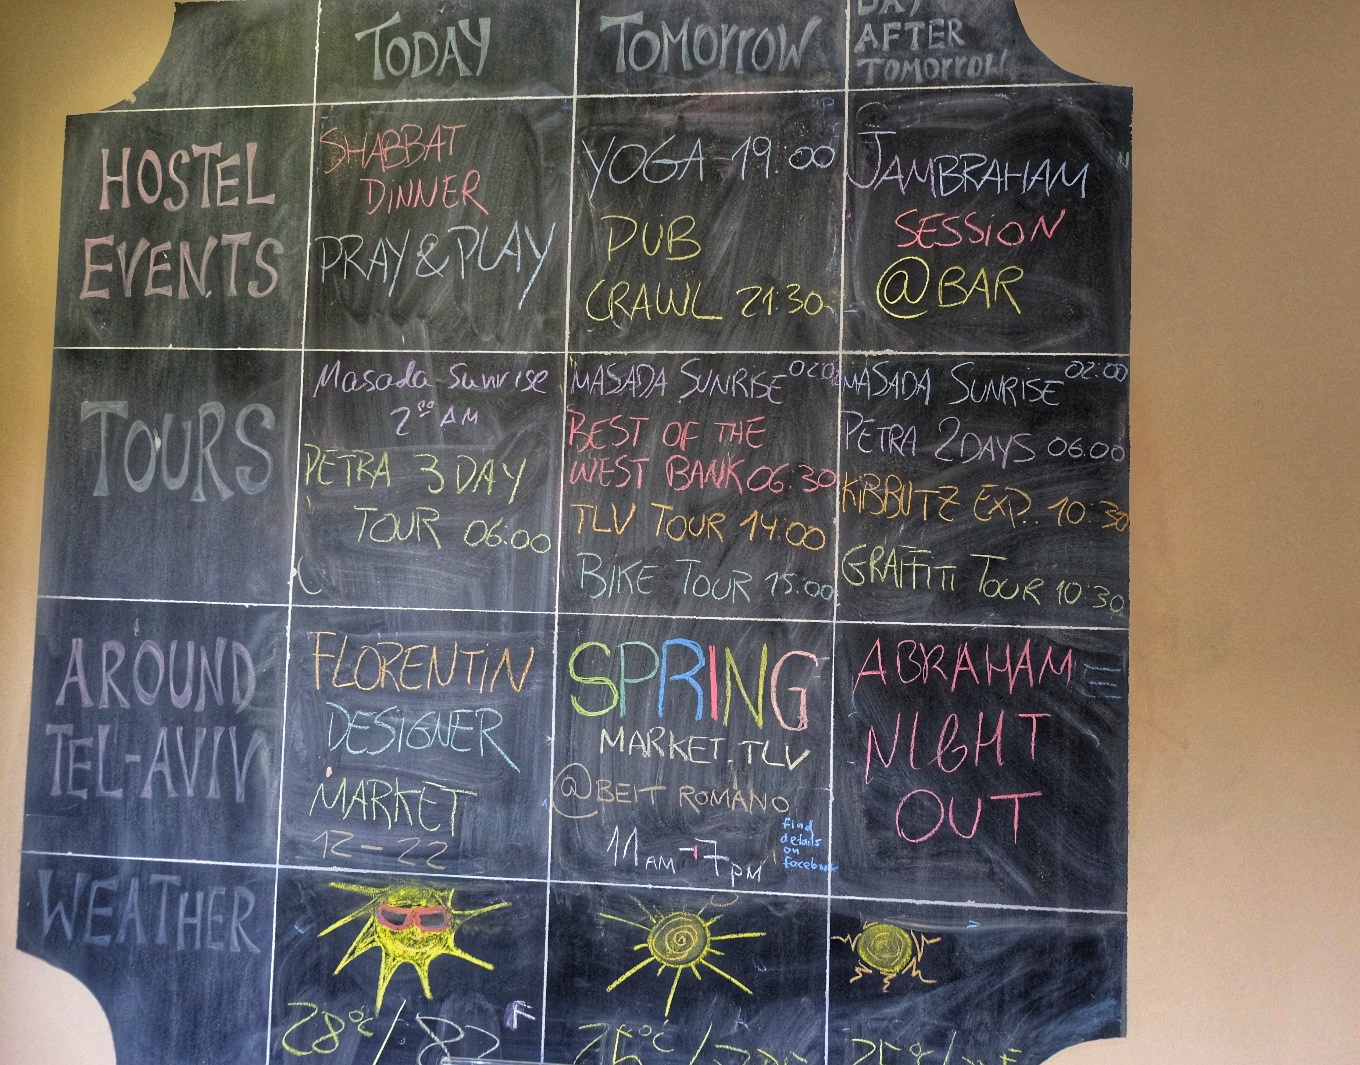 TODAY
TOMORROW
DAY
AFTER
TOMORROW
HOSTEL
EVENTS
SHABBAT
DINNER
PRAY & PLAY
YOGA 19:00
PUB
CRAWL 21:30
JAMBRAHAM
SESSION
@BAR
TOURS
Masada Sunrise
2⁰⁰ AM
PETRA 3 DAY
TOUR 06:00
MASADA SUNRISE
BEST OF THE
WEST BANK 06.30
TLV TOUR 14.00
BIKE TOUR 15.00
MASADA SUNRISE 02:00
PETRA 2DAYS 06.00
KIBBUTZ EXP. 10:30
GRAFFITI TOUR 10:30
AROUND
TEL-AVIV
FLORENTIN
DESIGNER
MARKET
12-22
SPRING
MARKET.TLV
@BEIT ROMANO
11AM-7PM
find
details
on
facebook
ABRAHAM
NIGHT
OUT
WEATHER
28°C/82 F
25°C/
25°C/